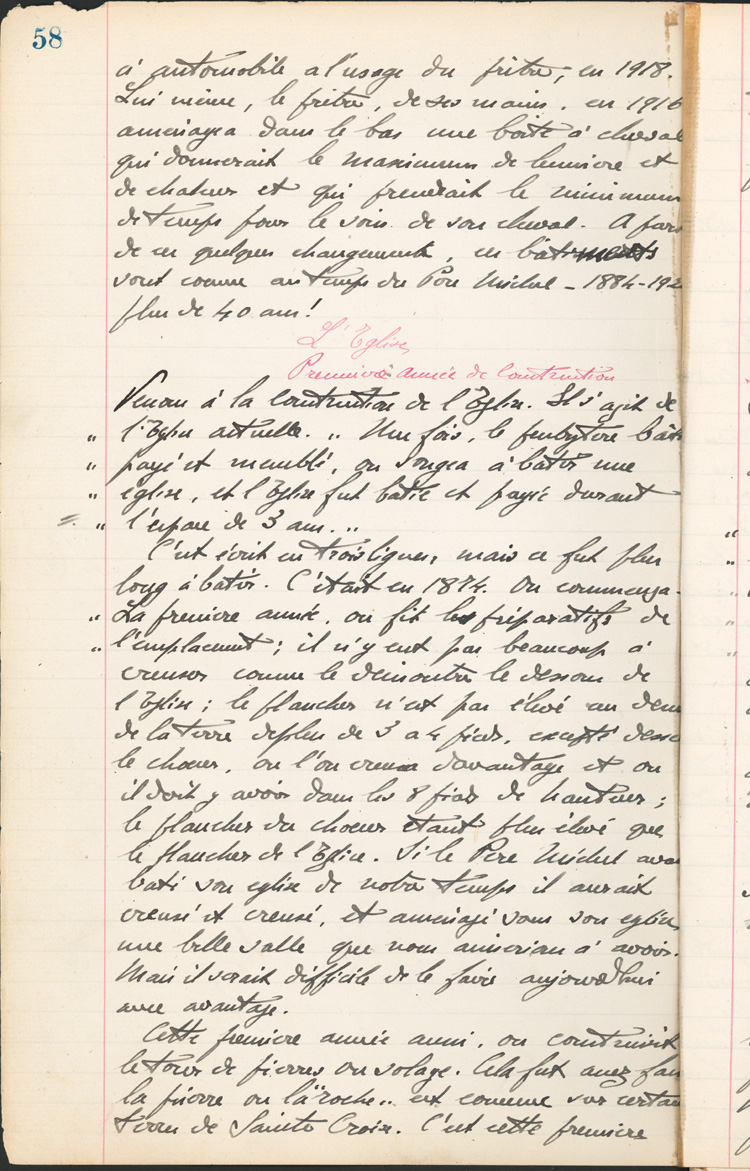 58
à automobile a l'usage du prêtre, en 1918.
Lui même, le prêtre, de ses mains, en 1916
aménagea dans le bas une boîte à cheval
qui donnerait le maximum de lumière et
de chaleur et qui prendrait le minimum
de temps pour le soin de son cheval. A part
de ces quelques changements, ces bâtiments
sont comme au temps du Père Michel - 1884-192
plus de 40 ans!
L'Eglise
Première année de construction
Venons à la construction de l'Eglise. Il s'agit de
" l'Eglise actuelle. " Une fois, le presbytère bâti
" payé et meublé, on songea à bâtir une
" église, et l'Eglise fut batie et payée durant
= " l'espace de 3 ans. "
C'est écrit en trois lignes, mais ce fut plus
long à batir. C'était en 1874. On commença.
" La première année, on fit les préparatifs de
" l'emplacement; il n'y eut pas beaucoup à
creuser comme le démontre le dessous de
l'Eglise; le plancher n'est pas élevé au dess
de la terre deplus de 3 a 4 pieds, excepté dessous
le choeur, ou l'on creusa davantage et ou
il doit y avoir dans les 8 pieds de hauteur;
le plancher du choeur etant plus élevé que
le plancher de l'Eglise. Si le Père Michel avait
bati son eglise de notre temps il aurait
creusé et creusé, et aménagé sous son eglise
une belle salle que nous aimerions à avoir.
Mais il serait difficile de le faire aujourd'hui
avec avantage.
Cette première année aussi, on construisit
le tour de pierres ou solage. Cela fut assez
la pierre ou la "roche" est connue sur certain
de Sainte Croix. C'est cette première